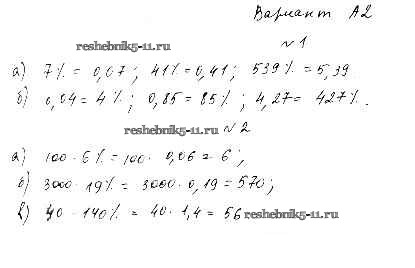 Вариант А2
reshebnik5-11.ru
№1
а) 7% = 0,07; 41% = 0,41; 539% = 5,39
б) 0,04 = 4%; 0,85 = 85%; 4,27 = 427%.
reshebnik5-11.ru №2
а) 100 · 6% = 100 · 0,06 = 6;
б) 3000 · 19% = 3000 · 0,19 = 570;
в) 40 · 140% = 40 · 1,4 = 56 reshebnik5-11.ru